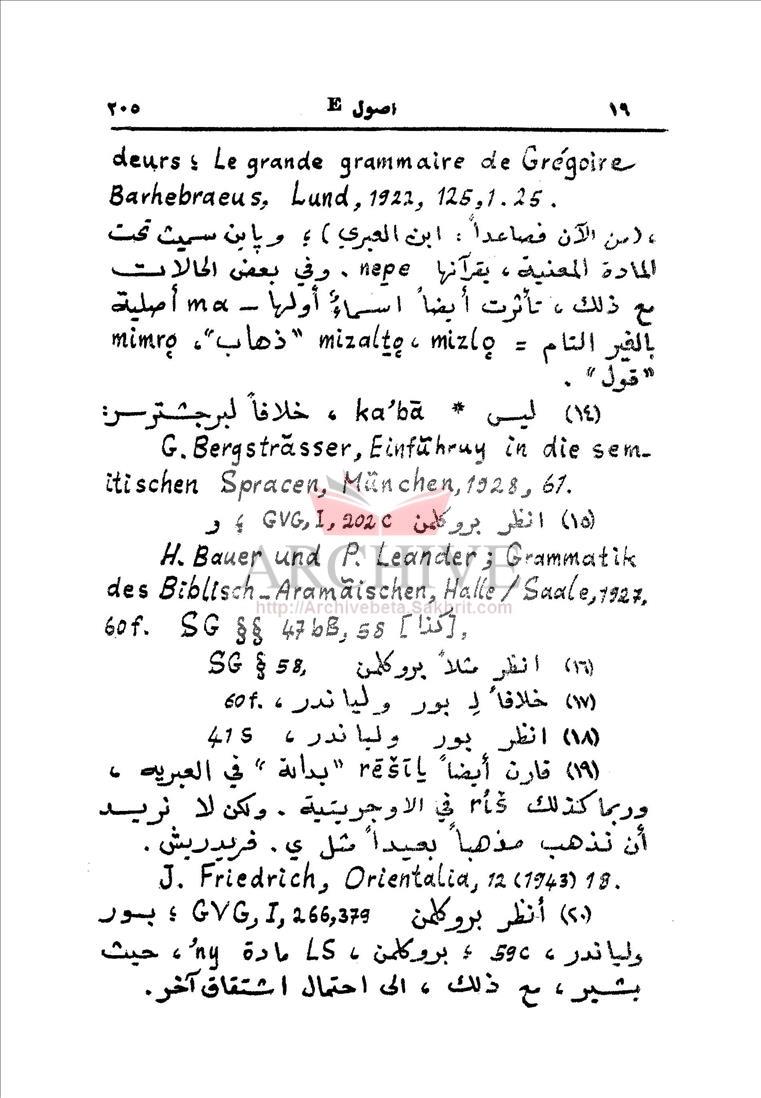 ١٩ اصول E ٢٠٥
deurs ؛ Le grande grammaire de Grégoire
Barhebraeus, Lund, 1922, 125,1.25.
،(من الآن فصاعداً : ابن العبري) ؛ وپاين سميث تحت
المادة المعنية ، يقرآنها nepe . وفي بعض الحالات
مع ذلك ، تأثرت أيضاً اسماءٌ أولها – ma أصلية
بالغير التام = mizlǫ ، mizalṯǫ “ذهاب”، mimrǫ
“قول” .
(١٤) ليس * ka’bā ، خلافاً لبرجشترسر:
G. Bergsträsser, Einführuy in die sem-
itischen Spracen, München, 1928, 61.
(١٥) انظر بروكلمن GVG, I, 202c ؛ و
H. Bauer und P. Leander ; Grammatik
des Biblisch-Aramäischen, Halle / Saale, 1927,
60f. SG §§ 47bB, 58 [كذا],
ARCHIVE
http://Archivebeta.Sakhrit.com
(١٦) انظر مثلاً بروكلمن SG § 58,
(١٧) خلافاً لِ بور ولياندر ، 60f.
(١٨) انظر بور ولياندر ، 41s
(١٩) قارن أيضاً بـ rēšīṯ “بداية” في العبريه ،
وربما كذلك ríš في الاوجريتية . ولكن لا نريد
أن نذهب مذهباً بعيداً مثل ي. فريدريش.
J. Friedrich, Orientalia, 12 (1943) 18.
(٢٠) أنظر بروكلمن GVG, I, 266,379 ؛ بور
ولياندر ، 59c ؛ بروكلمن ، LS مادة ’ny ، حيث
يشير ، مع ذلك ، الى احتمال اشتقاق آخر.